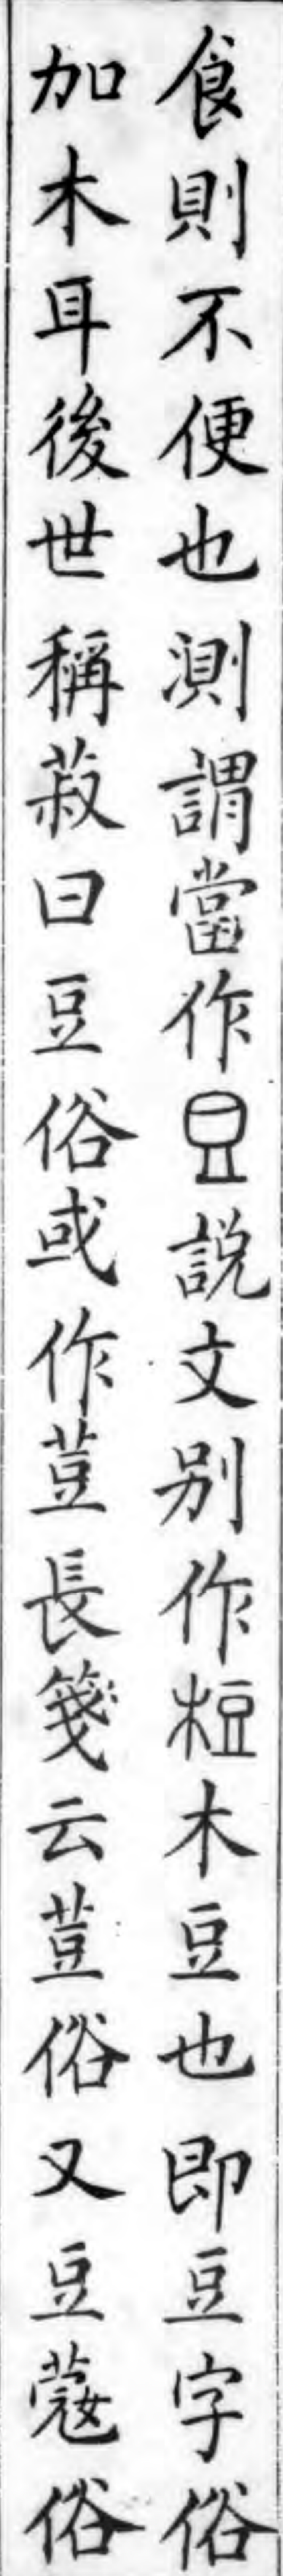 食則不便也測謂當作𠁁說文别作梪木豆也即豆字俗
加木耳後世稱菽曰豆俗或作荳長箋云荳俗又豆蔻俗